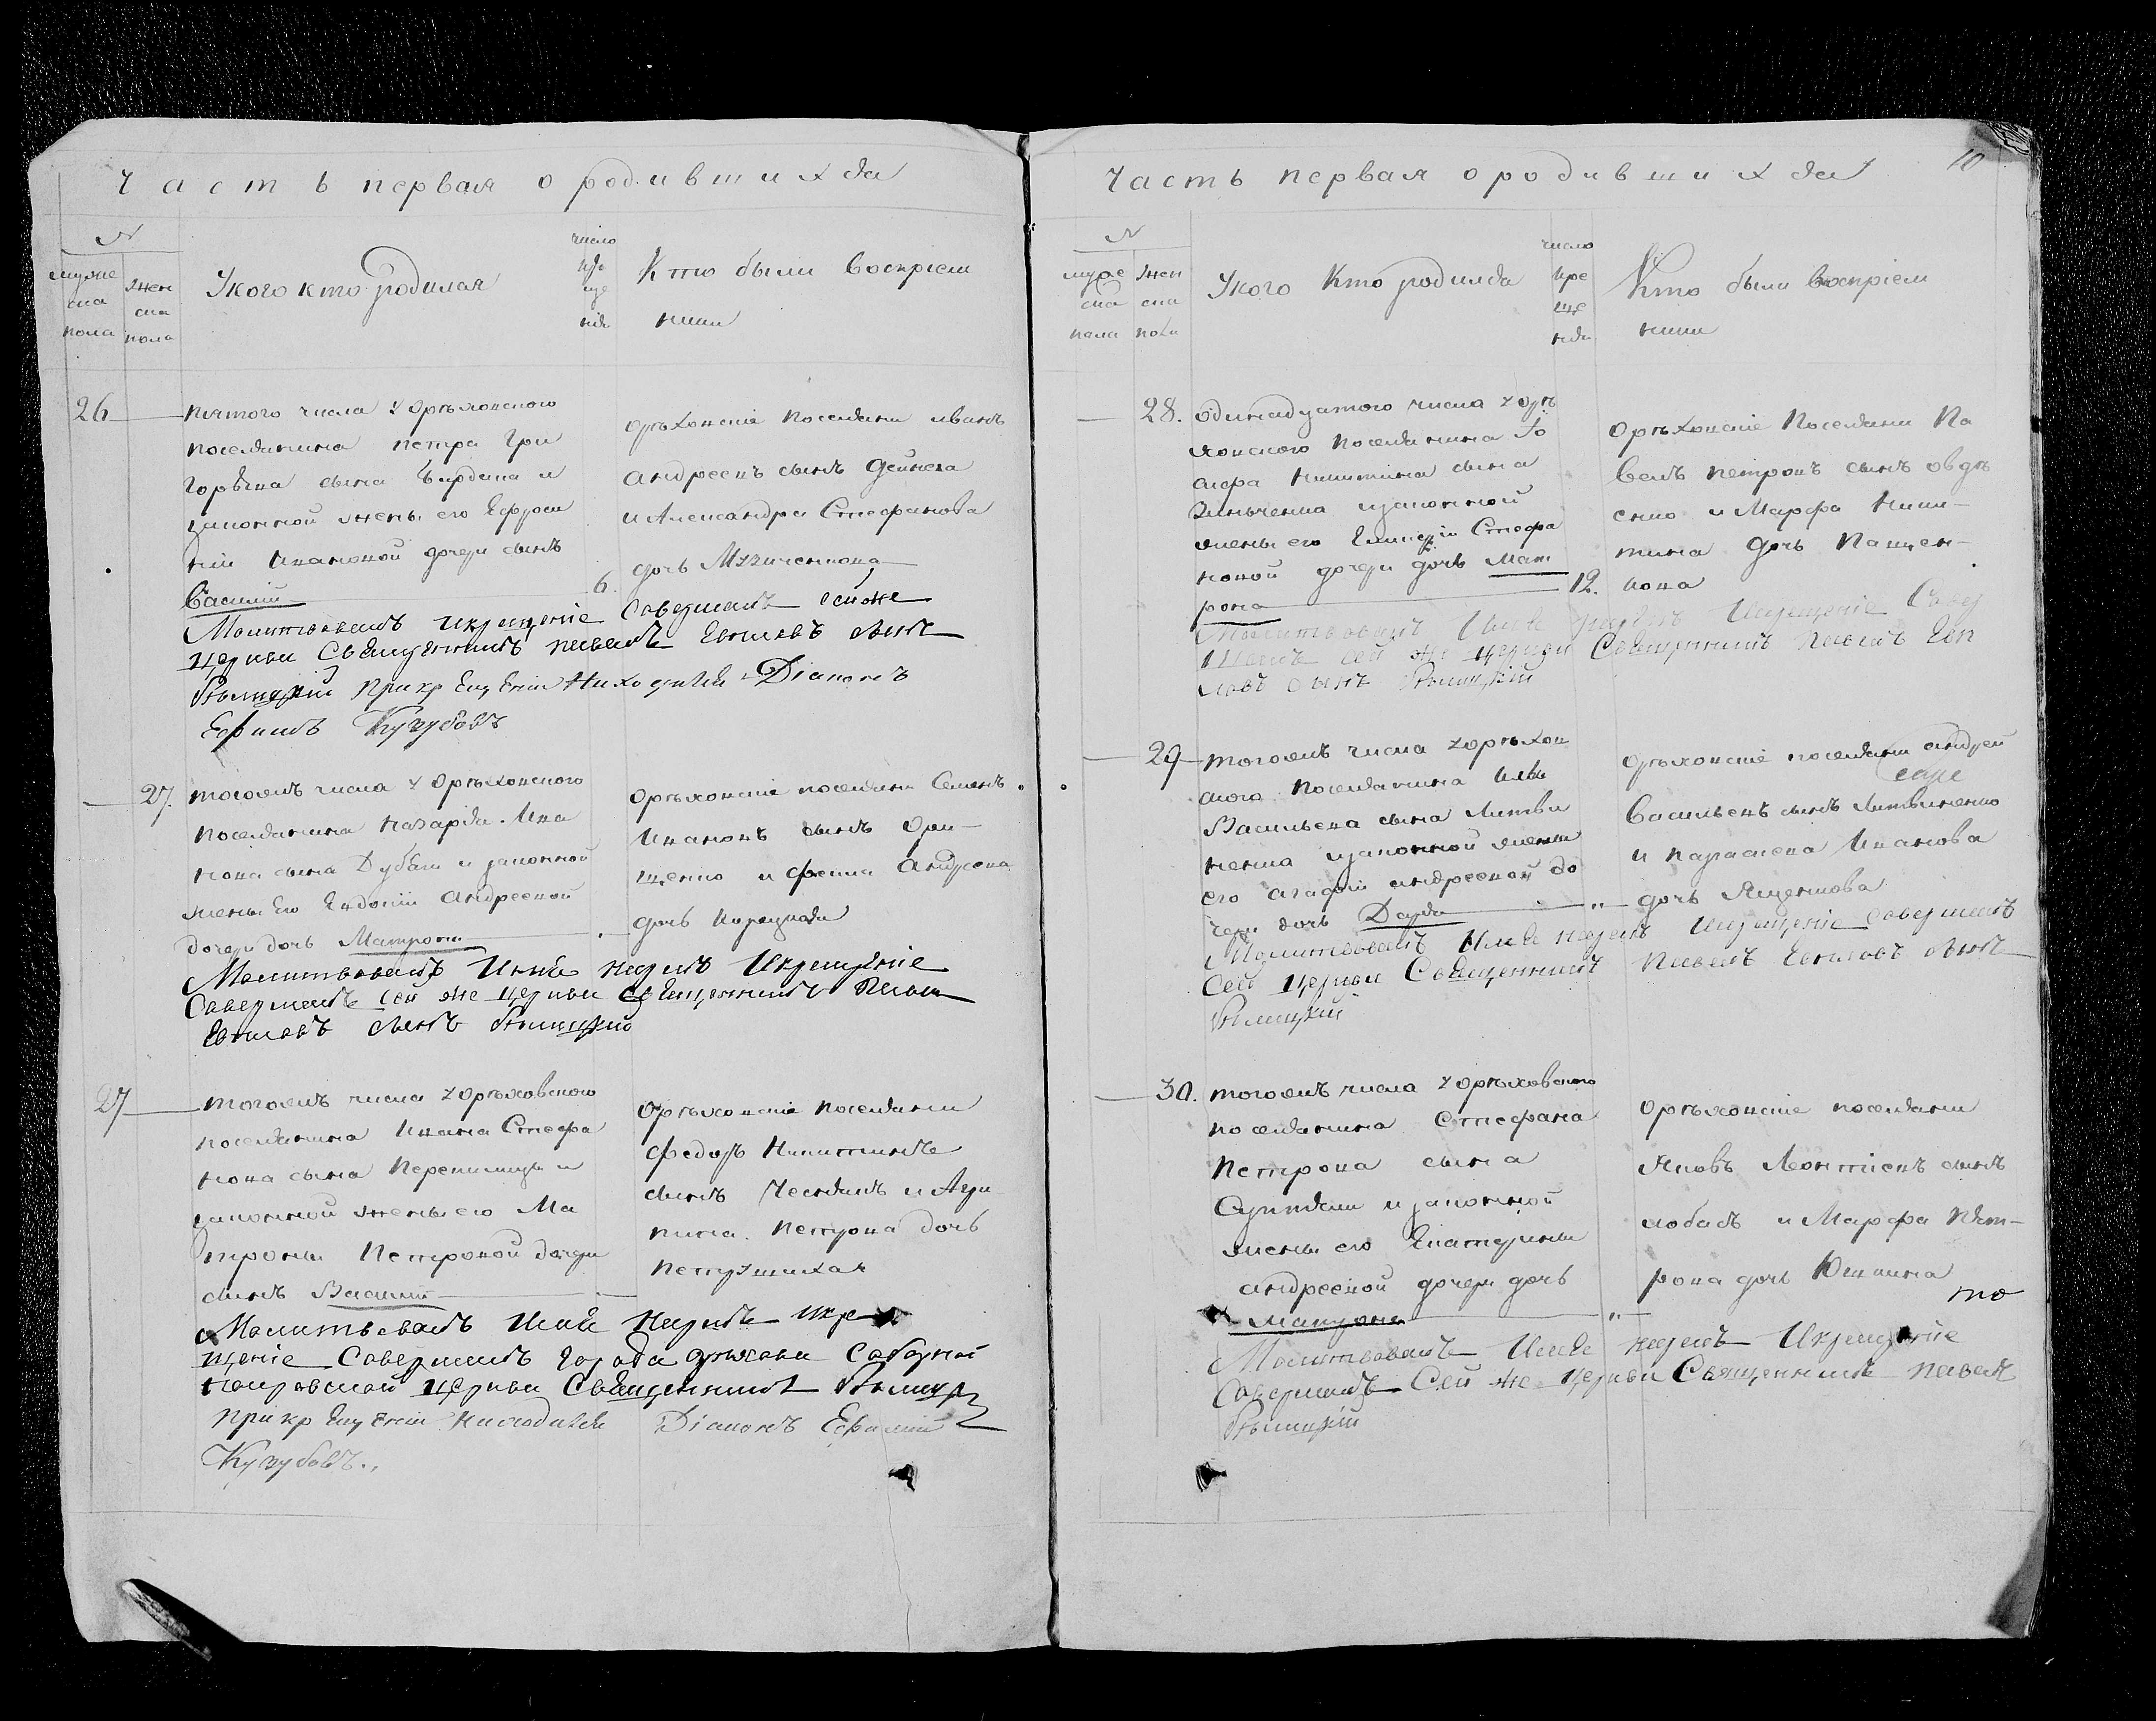 Часть первая о родившихся
N
мужеска пола
женска пола
Укого кто родился
число крещенія
Кто были восприемники
26
пятого числа у орѣховского
поселянина петра Гри
горьева сына и
законной жены его Ефроси
ніи Ивановой дочери сынъ
Василій
6.
орѣховскіе поселяни иванъ
андреевъ сынъ Дейнега
и Александра Стефанова
дочь
Молитвовалъ икрещеніе Совершалъ сейже
церкви Священникъ павелъ Евпловъ сынъ
при крещеніи Находился Діаконъ
Ефимъ Кузубовъ
27.
тогожъ числа у орѣховского
поселянина Назарія Ива
нова сына и законной
жены Его Евдокіи андреевой
дочери дочь Матрона
орѣховскіе поселяни Семенъ
Ивановъ сынъ Они-
щенко и фекла андреева
дочь
Молитвовалъ Имя нарекъ Икрещеніе
Совершалъ сей же церкви священникъ Павелъ
Евпловъ сынъ
27
тогожъ числа у орѣховского
поселянина Ивана Стефа
нова сына Перепилицы и
законной жены его Ма
троны Петровой дочери
сынъ Василій
Орѣховскіе поселяни
федоръ Никитинъ
сынъ и Агри
пина Петрова дочь
Молитвовалъ Имя Нарекъ Икре
щеніе Совершалъ города орѣхова Соборной
покровской церкви Священникъ
при крещеніи Находился Діаконъ Ефимій
Кузубовъ.
10
Часть первая о родившихся
N
мужеска пола
женска пола
Укого Кто родился
число крещенія
Кто были восприемники
28.
одинадцатого числа у орѣ
ховского поселянина
Никитина сына
Зинченка изаконной
жены его Стефа
новой дочери дочь Мат
рона
12.
орѣховскіе поселяни Па
велъ петровъ сынъ овдѣ
енко и Марфа Ники-
тина дочь Панчен-
кова
Молитвовалъ Имя нарекъ Икрещеніе Совер
шалъ сей же церкви Священникъ павелъ Евп
ловъ сынъ
29
тогожъ числа у орѣхов
ского поселянина Ильи
Васильева сына Литви
ненка изаконной жены
его агафіи андреевой до
чери дочь Дарія
"
орѣховскіе поселяни андрей
Васильевъ сынъ Литвиненко
и параскева Иванова
дочь Яценкова
Молитвовалъ Имя нарекъ Икрещеніе Совершалъ
Сей церкви Священникъ павелъ Евпловъ сынъ
30.
тогожъ числа у орѣховского
поселянина Стефана
Петрова сына
и законной
жены его Екатерины
андреевой дочери дочь
Матрона
"
орѣховскіе поселяни
Яковъ Леонтіевъ сынъ
лобасъ и Марфа Пет-
рова дочь Юшкина
то
Молитвовалъ Имя нарекъ Икрещеніе
Совершалъ Сей же церкви Священникъ павелъ